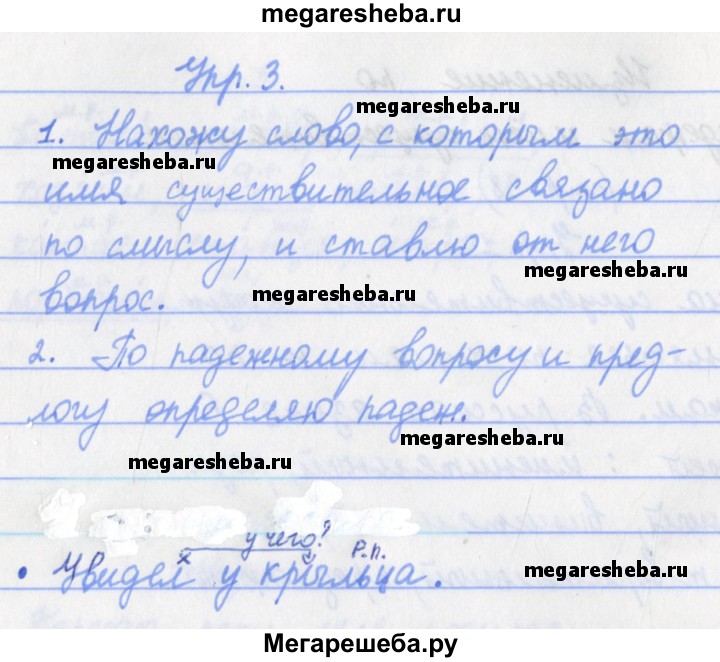 megaresheba.ru
Упр. 3.
megaresheba.ru
1. Нахожу слово, с которым это
megaresheba.ru
имя существительное связано
по смыслу, и ставлю от него
megaresheba.ru
вопрос.
megaresheba.ru
2. По падежному вопросу и пред-
логу определяю падеж.
megaresheba.ru
megaresheba.ru
у чего?
Р.п.
• Увидел у крыльца.
х
megaresheba.ru
Мегарешеба.ру